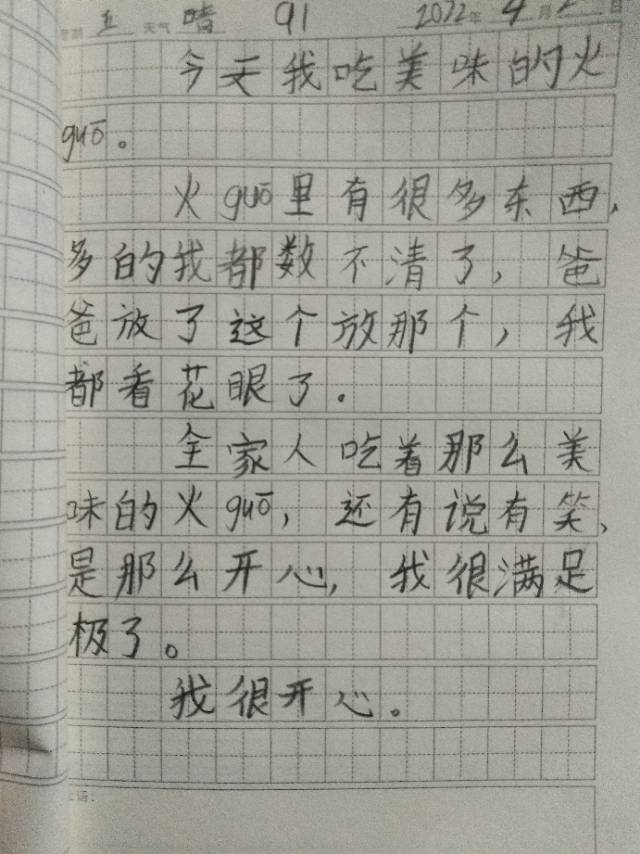 五 天气 晴 91 2022年 4月
今天我吃美味的火
guō。
火guō里有很多东西,
多的我都数不清了,爸
爸放了这个放那个,我
都看花眼了.
全家人吃着那么美
味的火guō,还有说有笑,
是那么开心,我很满足
极了。
我很开心。